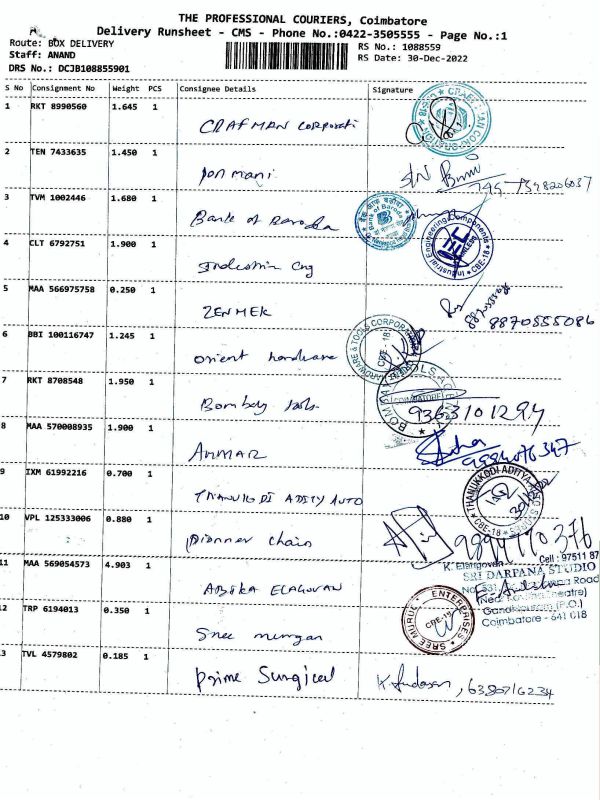 THE PROFESSIONAL COURIERS, Coimbatore
Delivery Runsheet - CMS - Phone No.:0422-3505555 - Page No.:1
Route: BOX DELIVERY
Staff: ANAND
DRS No.: DCJB108855901
RS No.: 1088559
RS Date: 30-Dec-2022
S No Consignment No Weight PCS Consignee Details Signature
1 RKT 8990560 1.645 1 CRAFMAN Corporati
2 TEN 7433635 1.450 1 Ponmani
3 TVM 1002446 1.680 1 Bank of Baroda
Bank of Baroda
4 CLT 6792751 1.900 1
Industrial Engineering Components
CBE-18
5 MAA 566975758 0.250 1 ZENMEK
8870555086
6 BBI 100116747 1.245 1 Orient hardware
HARDWARE & TOOLS CORPORATION
CBE - 18
7 RKT 8708548 1.950 1 Bombay
COIMBATORE
9363101294
8 MAA 570008935 1.900 1 AMMAR
9884076347
9 IXM 61992216 0.700 1 THANUKODI ADITY AUTO
CBE-18
10 VPL 125333006 0.880 1 Pionner chain
11 MAA 569054573 4.903 1 ELAGOVAN
K. Elangovan Cell : 97511 87
SRI DARPANA STUDIO
Road
Theatre)
(P.O.)
Coimbatore - 641 018
12 TRP 6194013 0.350 1 Sree murugan
SREE MURUGAN ENTERPRISES
CBE-18
13 TVL 4579802 0.185 1 Prime Surgical
6380716234